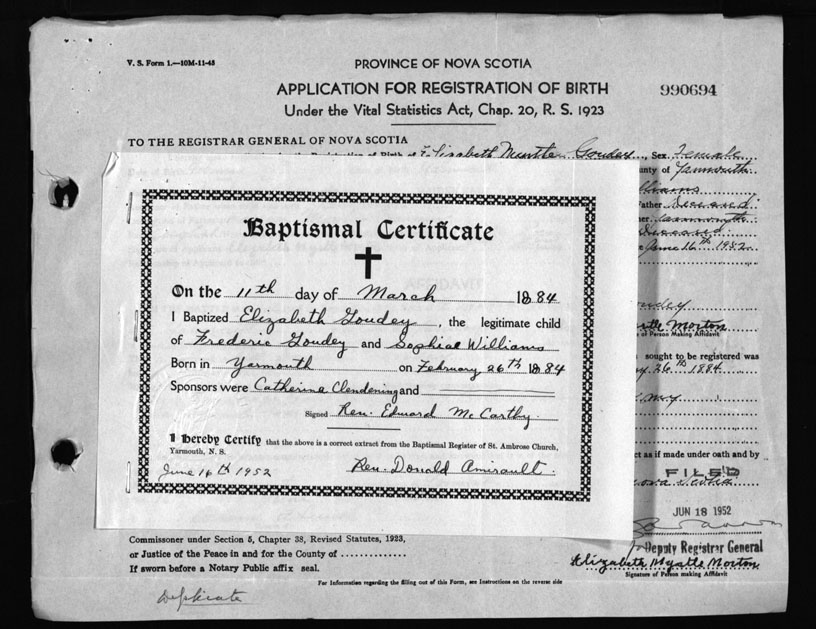 V. S. Form 1.—10M-11-45
PROVINCE OF NOVA SCOTIA
APPLICATION FOR REGISTRATION OF BIRTH
990694
Under the Vital Statistics Act, Chap. 20, R. S. 1923
TO THE REGISTRAR GENERAL OF NOVA SCOTIA
Birth of Elizabeth Myrtle Goudey, Sex Female
County of Yarmouth
Williams
Father Deceased
Deceased
June 16th 1952
Baptismal Certificate
On the 11th day of March 1884
I Baptized Elizabeth Goudey, the legitimate child
of Frederic Goudey and Sophia Williams
Born in Yarmouth on February 26th 1884
Sponsors were Catherine Clendening and
Signed Rev. Edward McCarthy.
I hereby Certify that the above is a correct extract from the Baptismal Register of St. Ambrose Church,
Yarmouth, N. S.
June 16th 1952 Rev. Donald Amirault.
Goudey
Morton
of Person Making Affidavit
sought to be registered was
26th 1884.
my
act as if made under oath and by
FILED
Nova Scotia
JUN 18 1952
Deputy Registrar General
Elizabeth Myrtle Morton
Signature of Person making Affidavit
Commissoner under Section 5, Chapter 38, Revised Statutes, 1923,
or Justice of the Peace in and for the County of
If sworn before a Notary Public affix seal.
For Information regarding the filling out of this Form, see Instructions on the reverse side
Duplicate